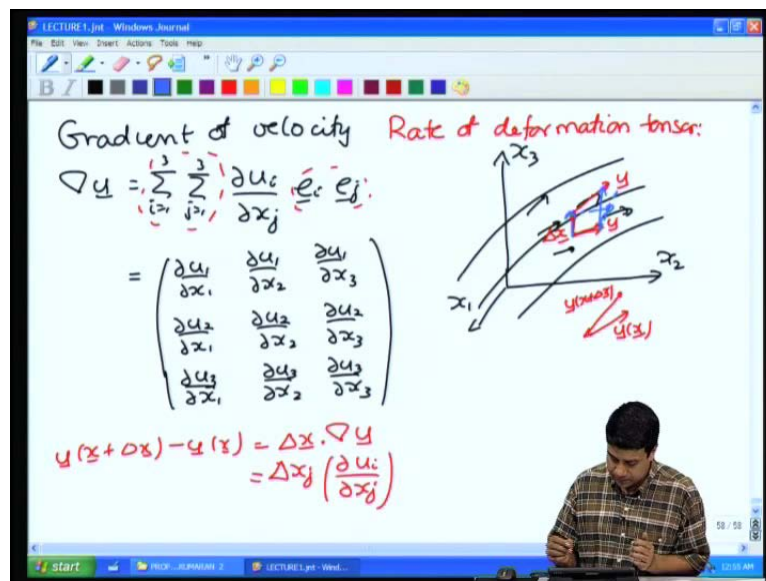 LECTURE1.jnt - Windows Journal
File Edit View Insert Actions Tools Help
B I
Gradient of velocity Rate of deformation tensor:
∇u = Σ_{i=1}^{3} Σ_{j=1}^{3} ∂u_i/∂x_j e_i e_j
= ( ∂u_1/∂x_1 ∂u_1/∂x_2 ∂u_1/∂x_3
∂u_2/∂x_1 ∂u_2/∂x_2 ∂u_2/∂x_3
∂u_3/∂x_1 ∂u_3/∂x_2 ∂u_3/∂x_3 )
x_3
u
Δx u
x_2
x_1
u(x+Δx)
u(x)
u(x+Δx) - u(x) = Δx . ∇u
= Δx_j (∂u_i/∂x_j)
58 / 58
start
PROF...KUMARAN 2
LECTURE1.jnt - Wind...
12:55 AM